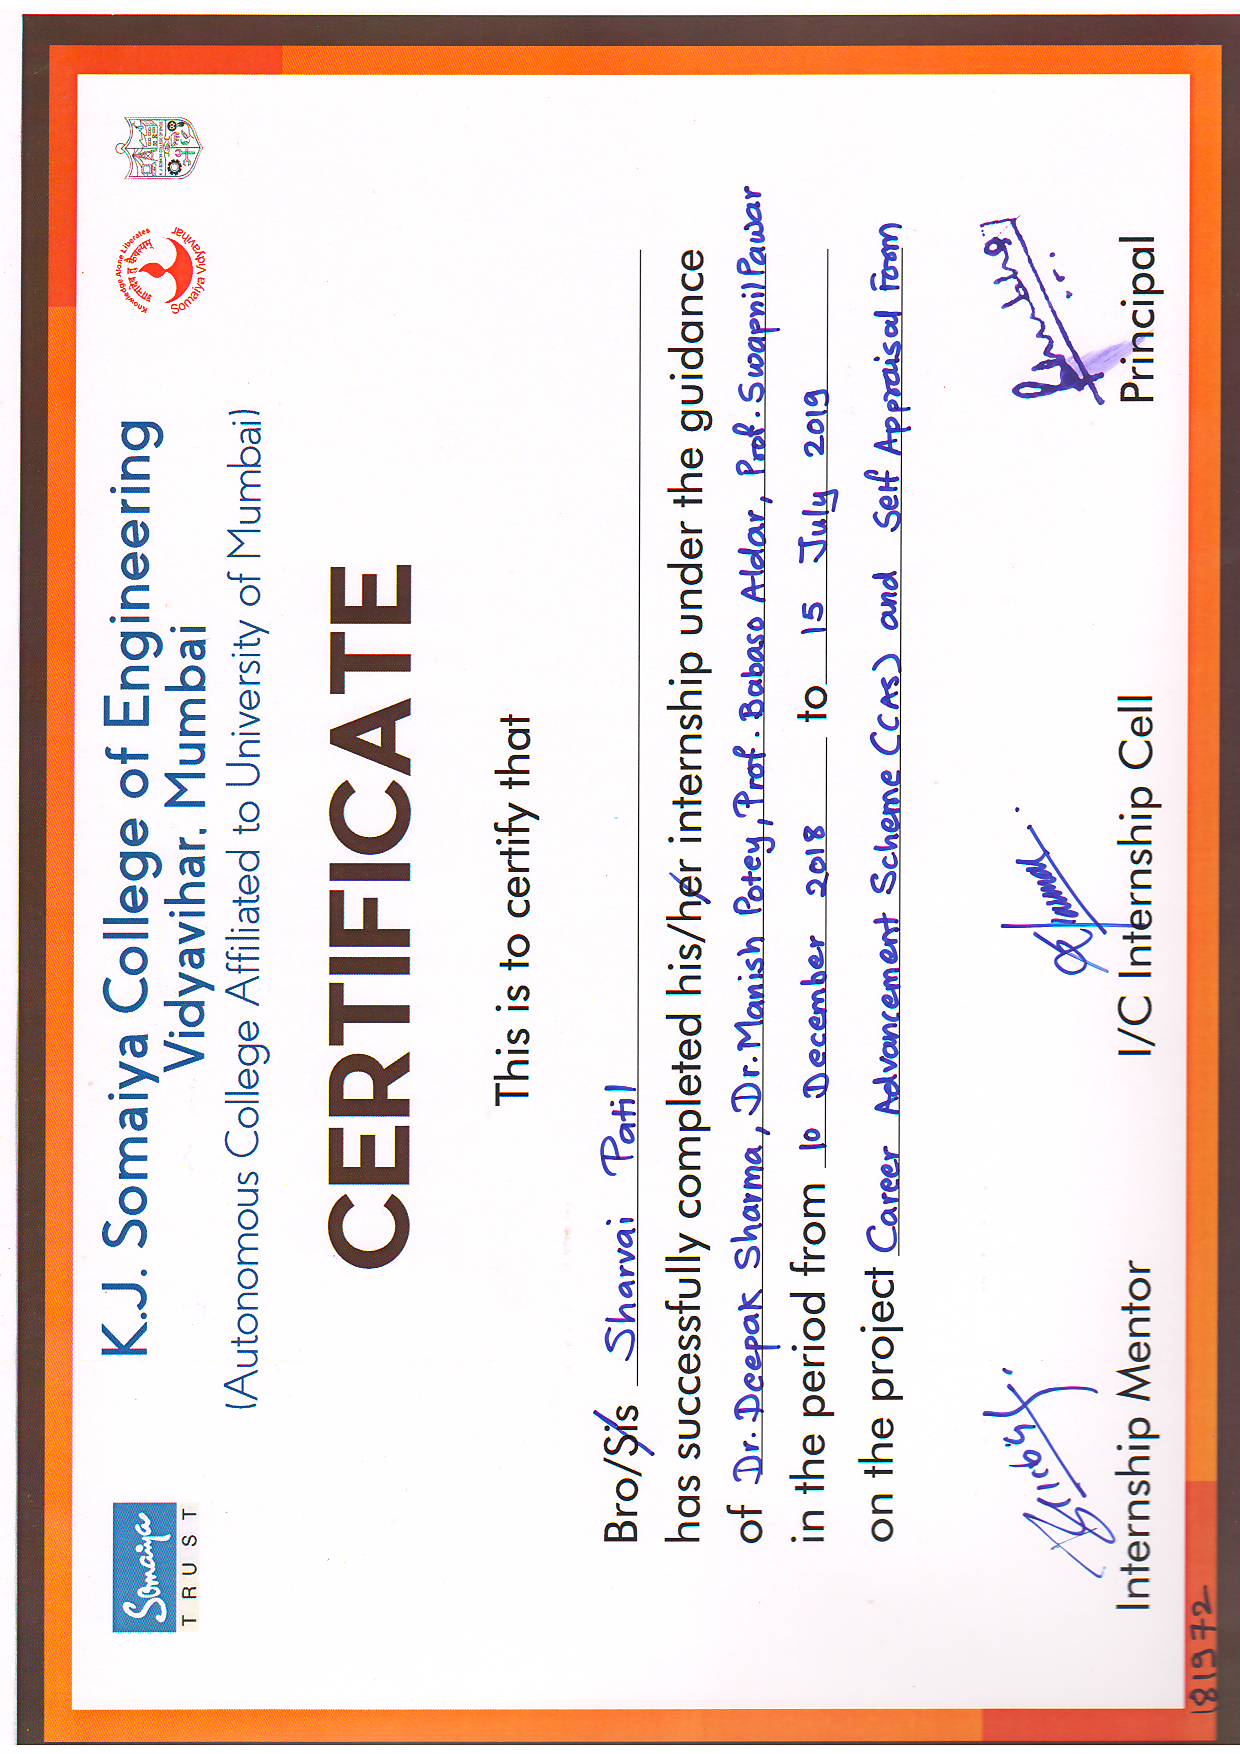 Somaiya
TRUST
K.J. Somaiya College of Engineering
Vidyavihar, Mumbai
(Autonomous College Affiliated to University of Mumbai)
Knowledge Alone Liberates
ज्ञानादेव तु कैवल्यम्
Somaiya Vidyavihar
CERTIFICATE
This is to certify that
Bro/Sis Sharvai Patil
has successfully completed his/her internship under the guidance
of Dr. Deepak Sharma, Dr. Manish Potey, Prof. Babaso Aldar, Prof. Swapnil Pawar
in the period from 10 December 2018 to 15 July 2019
on the project Career Advancement Scheme (CAS) and Self Appraisal Form
Internship Mentor
I/C Internship Cell
Principal
181972